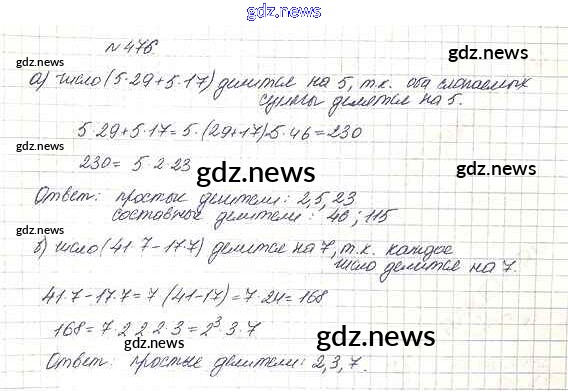 gdz.news
№ 476
gdz.news
gdz.news
а) число (5·29+5·17) делится на 5, т.к. оба слагаемых
суммы делятся на 5.
5·29+5·17=5·(29+17)=5·46=230
230= 5·2·23
gdz.news
gdz.news
gdz.news
Ответ: простые делители: 2,5,23
составные делители: 46; 115
в) число (41·7-17·7) делится на 7, т.к. каждое
число делится на 7.
41·7-17·7=7 (41-17)=7·24=168
168=7·2·2·2·3=2³·3·7
gdz.news
gdz.news
Ответ: простые делители: 2,3,7.